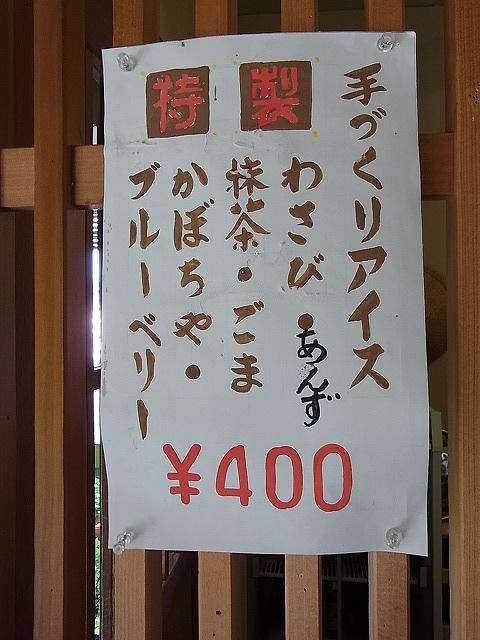 手づくりアイス
特製
わさび・あんず
抹茶・ごま
かぼちゃ・
ブルーベリー
¥400